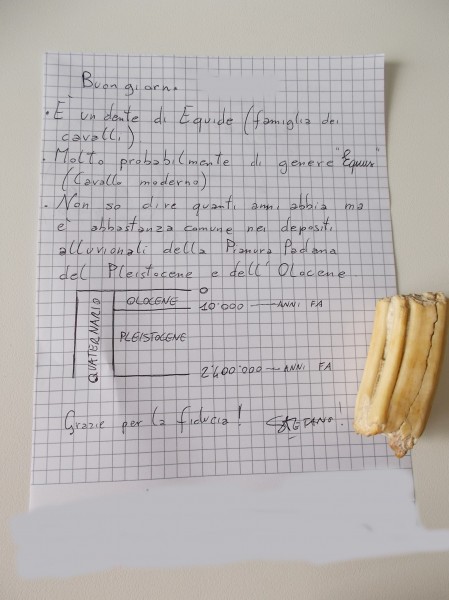 Buongiorno
• È un dente di Equide (famiglia dei
cavalli)
• Molto probabilmente di genere "Equus"
(Cavallo moderno)
• Non so dire quanti anni abbia ma
è abbastanza comune nei depositi
alluvionali della Pianura Padana
del Pleistocene e dell'Olocene
QUATERNARIO
0
OLOCENE
10'000 — ANNI FA
PLEISTOCENE
2'400'000 — ANNI FA
Grazie per la fiducia! STEFANO!